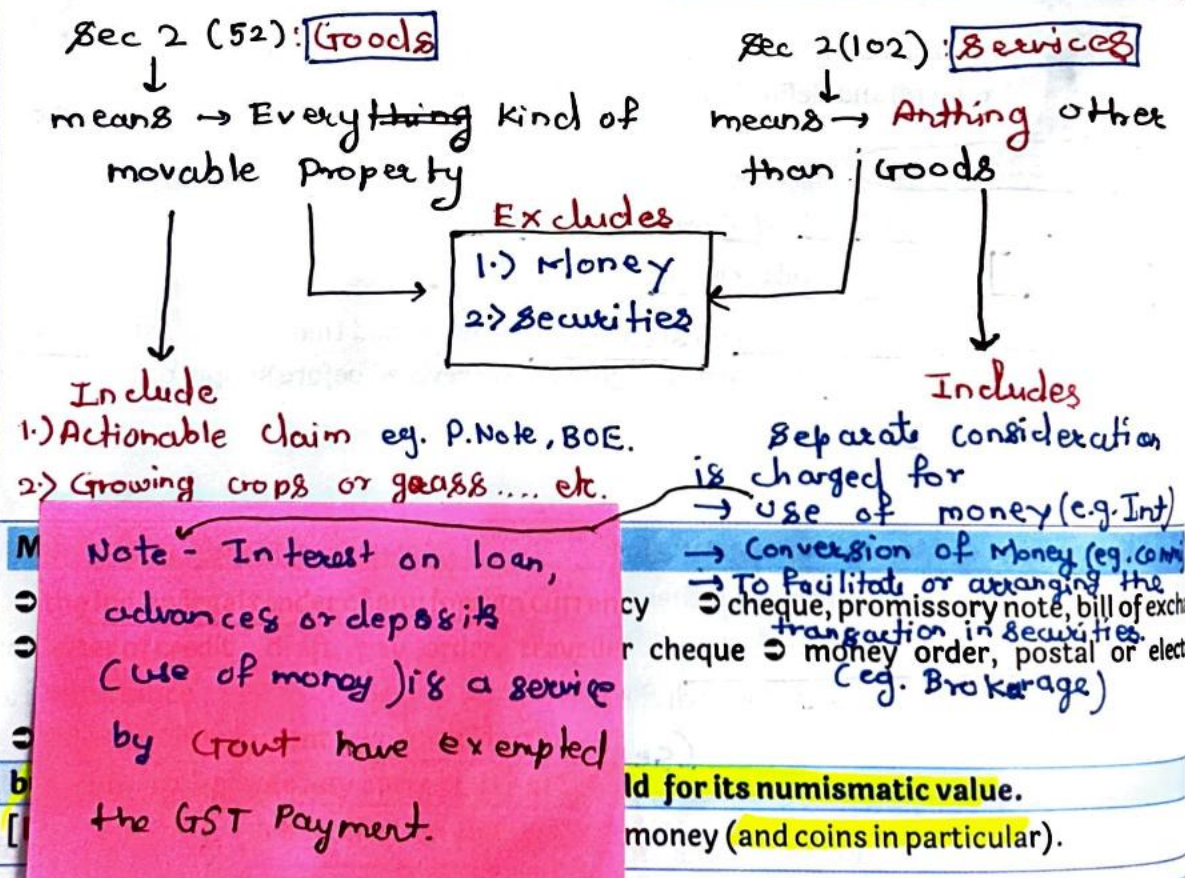 Sec 2 (52): Goods
means → Everything kind of
movable Property
Sec 2(102) : Services
means → Anthing other
than Goods
Excludes
1.) Money
2.) Securities
Include
1.) Actionable Claim eg. P.Note, BOE.
2.) Growing crops or grass.... etc.
Includes
Separate consideration
is charged for
→ Use of money (e.g. Int)
→ Conversion of Money (eg.
→ To facilitate or arranging the
transaction in securities.
(eg. Brokerage)
Note - Interest on loan,
advances or deposits
(use of money) is a service
by Govt have exempted
the GST Payment.
M
cy ➲ cheque, promissory note, bill of exch
r cheque ➲ money order, postal or elect
b
ld for its numismatic value.
[
money (and coins in particular).